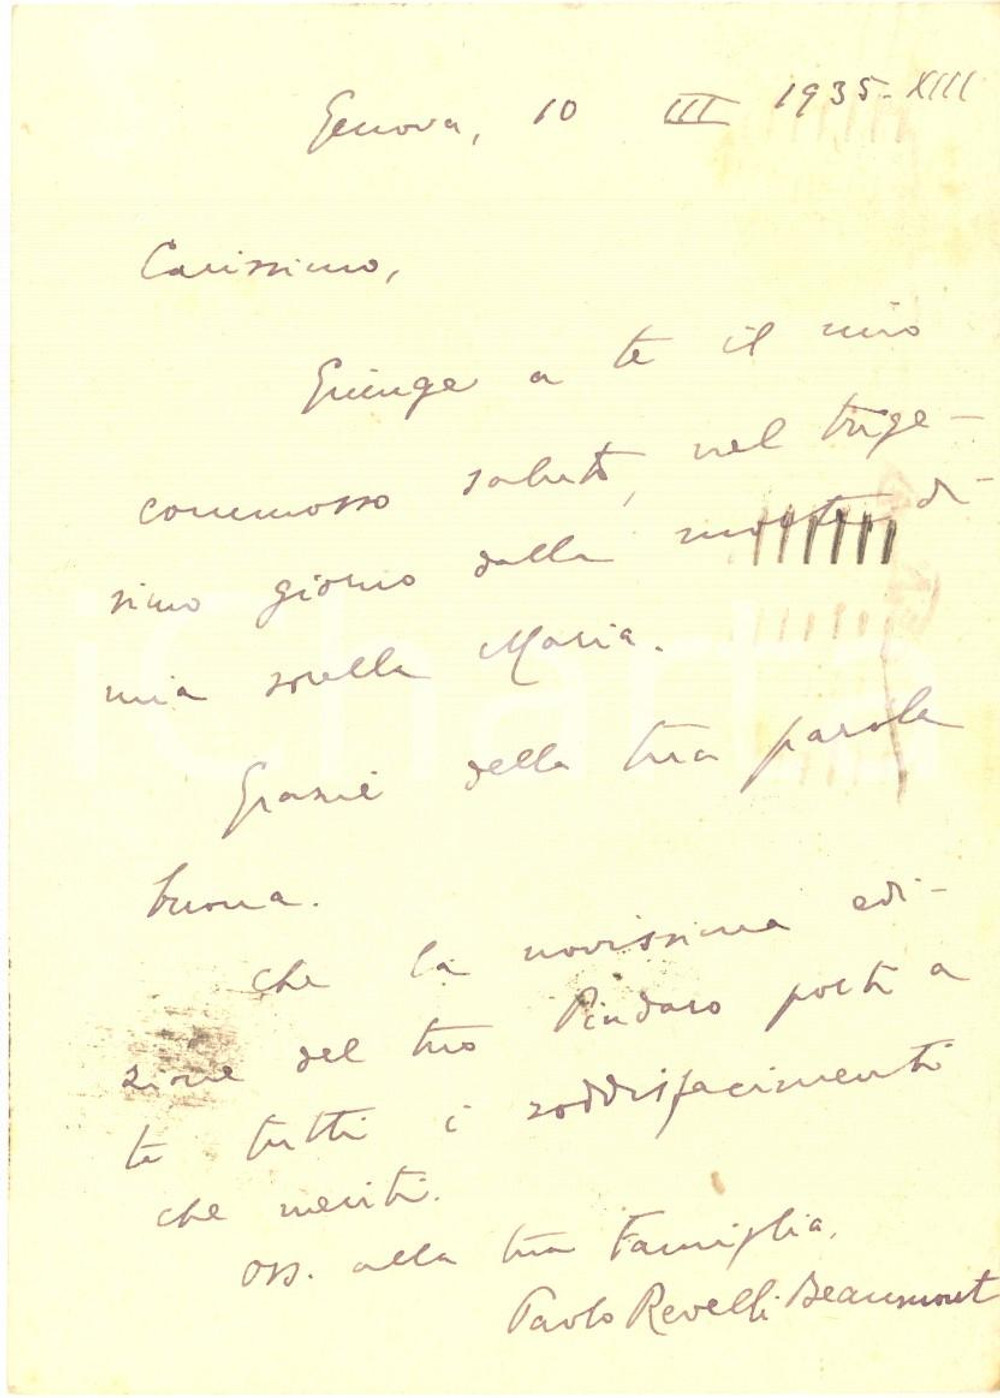 Genova, 10 III 1935-XIII
Carissimo,
Giunge a te il mio
commosso saluto, nel trige-
simo giorno dalla morte di
mia sorella Maria.
Grazie della tua parola
buona.
Che la novissima edi-
zione del tuo Pindaro porti a
te tutti i soddisfacimenti
che meriti.
Oss. alla tua Famiglia.
Paolo Revelli Beaumont
iCharta